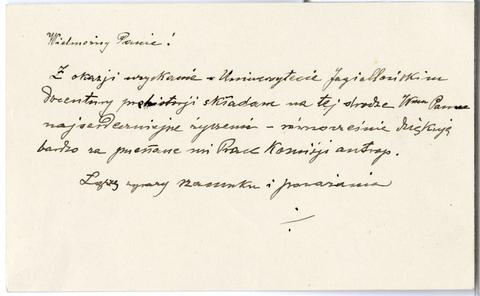 Wielmożny Panie!
Z okazji uzyskania w Uniwersytecie Jagiellońskim
docentury prehistorji składam na tej drodze Wmu Panu
najserdeczniejsze życzenia – równocześnie dziękuję
bardzo za przesłane mi Prace Komisji antrop.
Łączę wyrazy szacunku i poważania